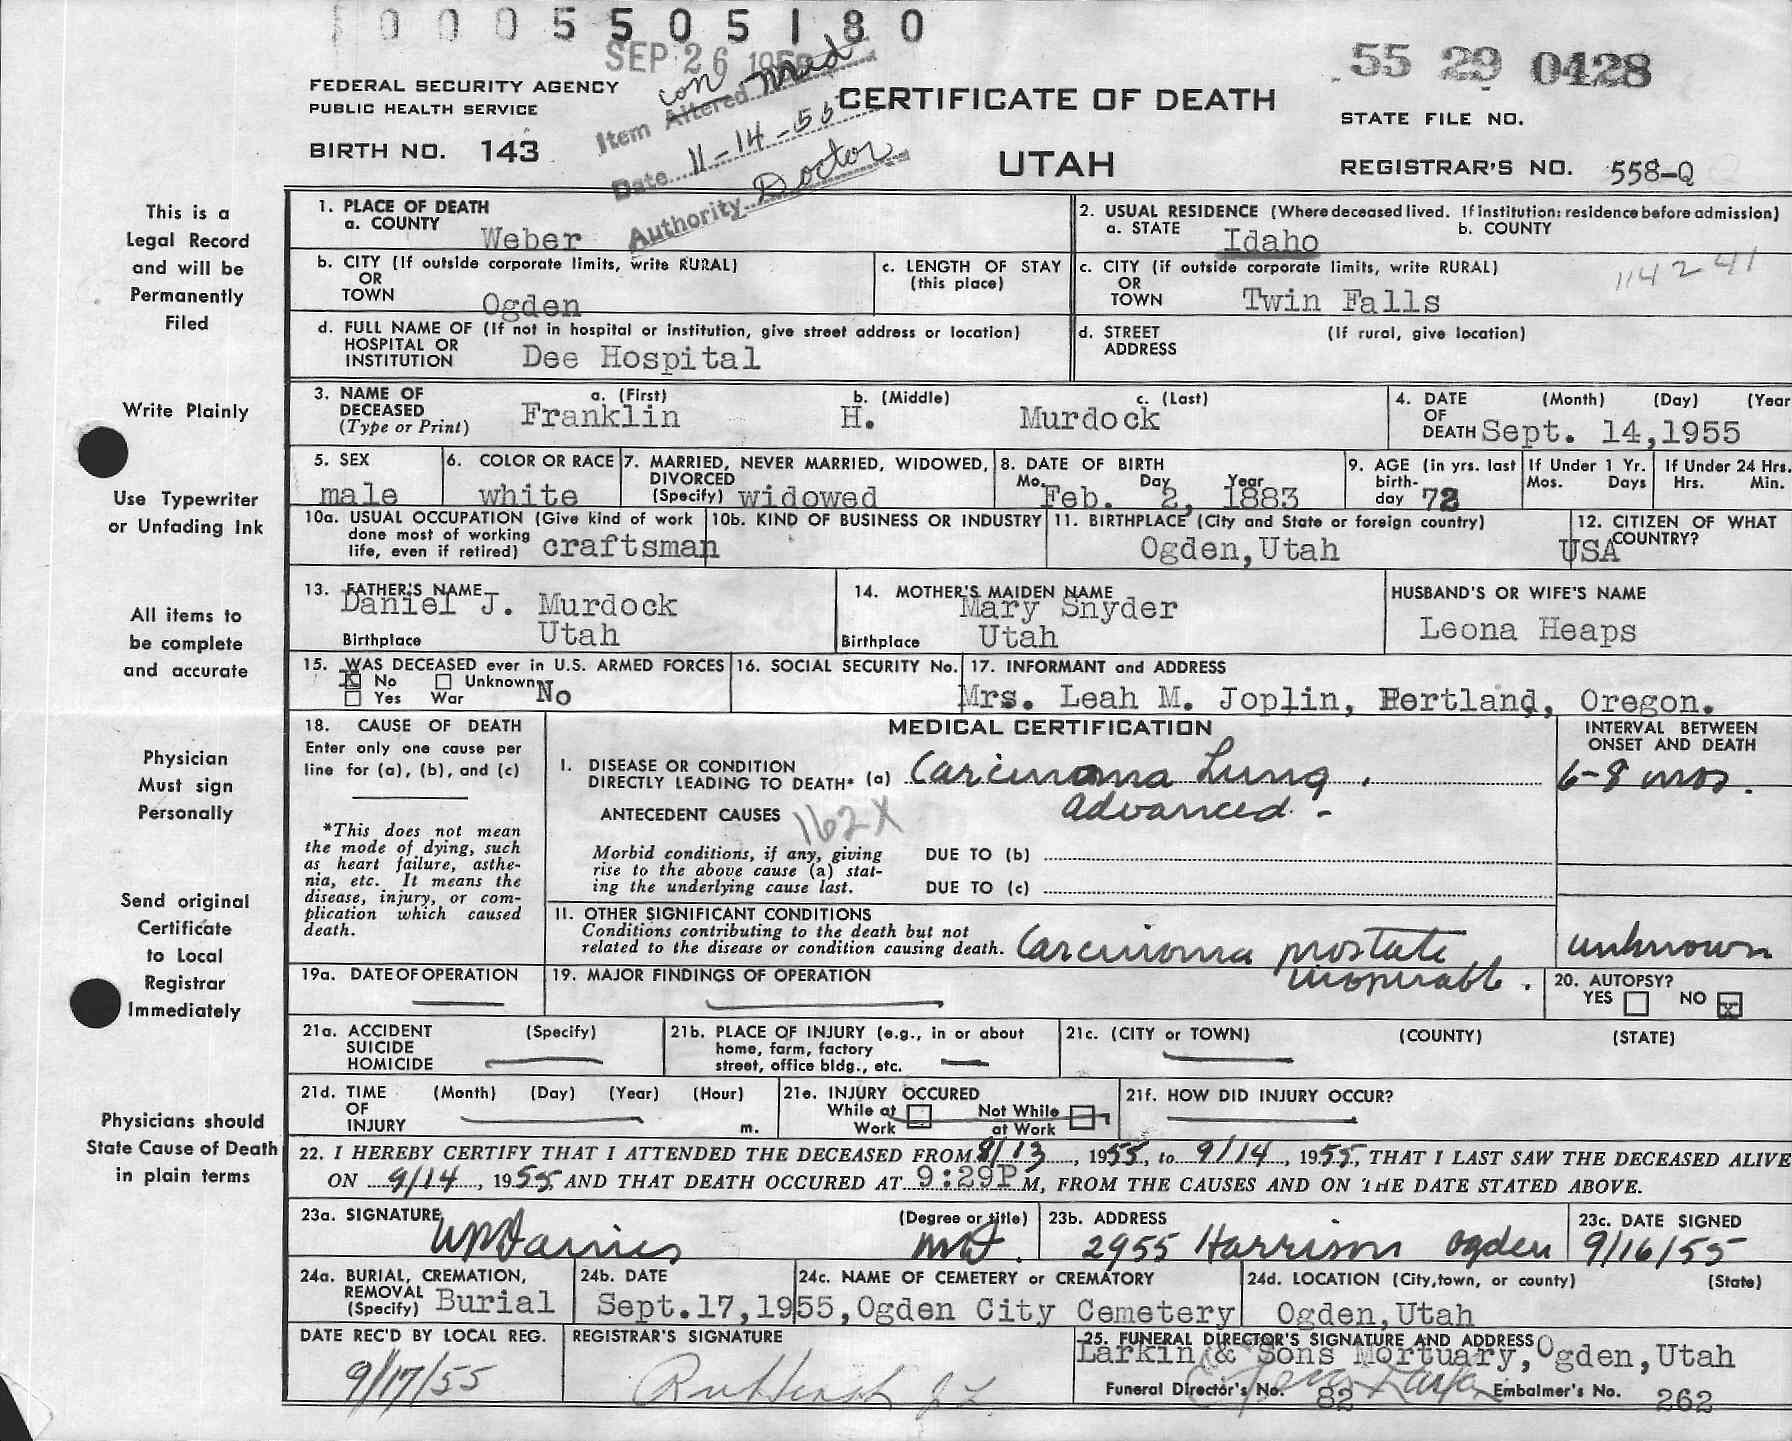 0 0 0 5 5 0 5 1 8 0
SEP 26 1955
55 29 0428
FEDERAL SECURITY AGENCY
PUBLIC HEALTH SERVICE
BIRTH NO. 143
Item Altered
con
Date 11-14-55
Authority Doctor
CERTIFICATE OF DEATH
UTAH
STATE FILE NO.
REGISTRAR'S NO. 558-Q
This is a
Legal Record
and will be
Permanently
Filed
Write Plainly
Use Typewriter
or Unfading Ink
All items to
be complete
and accurate
Physician
Must sign
Personally
Send original
Certificate
to Local
Registrar
Immediately
Physicians should
State Cause of Death
in plain terms
1. PLACE OF DEATH
a. COUNTY Weber
2. USUAL RESIDENCE (Where deceased lived. If institution: residence before admission)
a. STATE Idaho b. COUNTY
b. CITY (If outside corporate limits, write RURAL)
OR
TOWN Ogden
c. LENGTH OF STAY
(this place)
c. CITY (if outside corporate limits, write RURAL) 114241
OR
TOWN Twin Falls
d. FULL NAME OF (If not in hospital or institution, give street address or location)
HOSPITAL OR
INSTITUTION Dee Hospital
d. STREET (If rural, give location)
ADDRESS
3. NAME OF DECEASED (Type or Print)
a. (First) b. (Middle) c. (Last)
Franklin H. Murdock
4. DATE (Month) (Day) (Year
OF
DEATH Sept. 14,1955
5. SEX
male
6. COLOR OR RACE
white
7. MARRIED, NEVER MARRIED, WIDOWED,
DIVORCED
(Specify) widowed
8. DATE OF BIRTH
Mo. Day Year
Feb. 2, 1883
9. AGE (in yrs. last
birth-
day 72
If Under 1 Yr.
Mos. Days
If Under 24 Hrs.
Hrs. Min.
10a. USUAL OCCUPATION (Give kind of work
done most of working
life, even if retired) craftsman
10b. KIND OF BUSINESS OR INDUSTRY
11. BIRTHPLACE (City and State or foreign country)
Ogden,Utah
12. CITIZEN OF WHAT
COUNTRY?
USA
13. FATHER'S NAME
Daniel J. Murdock
Birthplace Utah
14. MOTHER'S MAIDEN NAME
Mary Snyder
Birthplace Utah
HUSBAND'S OR WIFE'S NAME
Leona Heaps
15. WAS DECEASED ever in U.S. ARMED FORCES
X No Unknown No
Yes War
16. SOCIAL SECURITY No.
17. INFORMANT and ADDRESS
Mrs. Leah M. Joplin, Portland, Oregon.
18. CAUSE OF DEATH
Enter only one cause per
line for (a), (b), and (c)
*This does not mean
the mode of dying, such
as heart failure, asthe-
nia, etc. It means the
disease, injury, or com-
plication which caused
death.
MEDICAL CERTIFICATION
INTERVAL BETWEEN
ONSET AND DEATH
I. DISEASE OR CONDITION
DIRECTLY LEADING TO DEATH* (a) Carcinoma Lung. 6-8 mos.
advanced.
ANTECEDENT CAUSES 162X
Morbid conditions, if any, giving
rise to the above cause (a) stat-
ing the underlying cause last.
DUE TO (b)
DUE TO (c)
II. OTHER SIGNIFICANT CONDITIONS
Conditions contributing to the death but not
related to the disease or condition causing death. Carcinoma prostate unknown
inoperable.
19a. DATE OF OPERATION
19. MAJOR FINDINGS OF OPERATION
20. AUTOPSY?
YES NO X
21a. ACCIDENT (Specify)
SUICIDE
HOMICIDE
21b. PLACE OF INJURY (e.g., in or about
home, farm, factory
street, office bldg., etc.
21c. (CITY or TOWN) (COUNTY) (STATE)
21d. TIME (Month) (Day) (Year) (Hour)
OF
INJURY m.
21e. INJURY OCCURED
While at Work Not While at Work
21f. HOW DID INJURY OCCUR?
22. I HEREBY CERTIFY THAT I ATTENDED THE DECEASED FROM 8/13, 1955, to 9/14, 1955, THAT I LAST SAW THE DECEASED ALIVE
ON 9/14, 1955, AND THAT DEATH OCCURED AT 9:29P M, FROM THE CAUSES AND ON THE DATE STATED ABOVE.
23a. SIGNATURE (Degree or title)
WMDaines MD.
23b. ADDRESS
2955 Harrison Ogden
23c. DATE SIGNED
9/16/55
24a. BURIAL, CREMATION,
REMOVAL
(Specify) Burial
24b. DATE
Sept.17,1955,
24c. NAME OF CEMETERY or CREMATORY
Ogden City Cemetery
24d. LOCATION (City,town, or county) (State)
Ogden,Utah
DATE REC'D BY LOCAL REG.
9/17/55
REGISTRAR'S SIGNATURE
25. FUNERAL DIRECTOR'S SIGNATURE AND ADDRESS
Larkin & Sons Mortuary,Ogden,Utah
Funeral Director's No. 82 Embalmer's No. 262